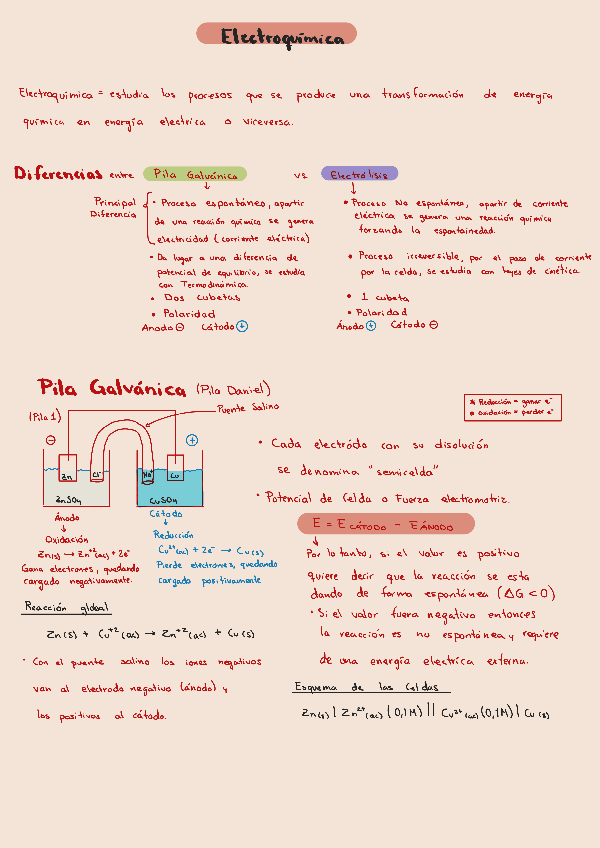 Electroquímica
Electroquímica = estudia los procesos que se produce una transformación de energía
química en energía electrica o viceversa.
Diferencias entre Pila Galvánica vs Electrólisis
Principal
Diferencia
• Proceso espontáneo, apartir
de una reacción química se genera
electricidad (corriente eléctrica)
• Da lugar a una diferencia de
potencial de equilibrio, se estudia
con Termodinámica.
• Dos cubetas
• Polaridad
Ánodo ⊖ Cátodo ⊕
• Proceso No espontáneo, apartir de corriente
eléctrica se genera una reacción química
forzando la espontainedad.
• Proceso irreversible, por el paso de corriente
por la celda, se estudia con leyes de cinética.
• 1 cubeta
• Polaridad
Ánodo ⊕ Cátodo ⊖
Pila Galvánica (Pila Daniel)
(Pila 1)
Puente Salino
⊖ ⊕
Zn Cl⁻ Na⁺ Cu
ZnSO₄ CuSO₄
Ánodo
↓
Oxidación
Zn(s) → Zn⁺²(ac) + 2e⁻
Gana electrones, quedando
cargado negativamente.
Cátodo
↓
Reducción
Cu²⁺(ac) + 2e⁻ → Cu(s)
Pierde electrones, quedando
cargado positivamente
Reacción global
Zn(s) + Cu⁺²(ac) → Zn⁺²(ac) + Cu(s)
• Con el puente salino los iones negativos
van al electrodo negativo (ánodo) y
los positivos al cátodo.
* Reducción = ganar e⁻
* Oxidación = perder e⁻
• Cada electródo con su disolución
se denomina "semicelda"
• Potencial de Celda o Fuerza electromotriz.
E = E CÁTODO - E ÁNODO
↓
Por lo tanto, si el valor es positivo
quiere decir que la reacción se esta
dando de forma espontánea (ΔG < 0)
• Si el valor fuera negativo entonces
la reacción es no espontánea y requiere
de una energía electrica externa.
Esquema de las Celdas
Zn(s) | Zn²⁺(ac) (0,1M) || Cu²⁺(ac) (0,1M) | Cu(s)